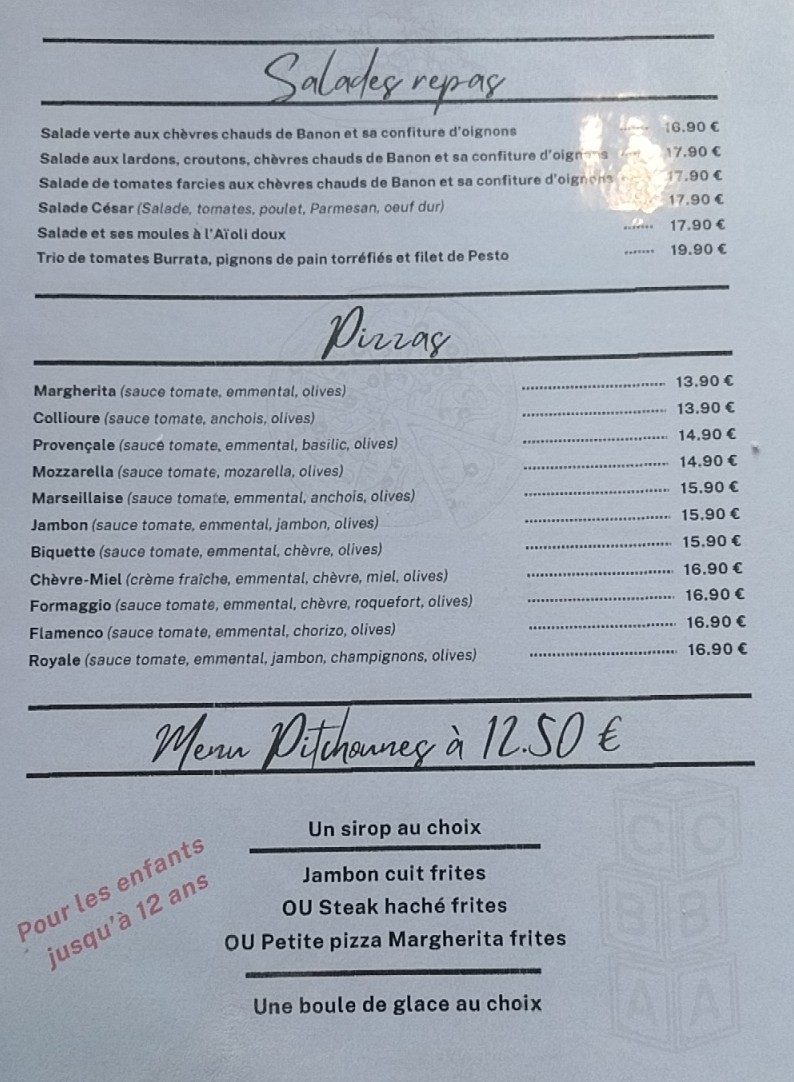 Salades repas
Salade verte aux chèvres chauds de Banon et sa confiture d'oignons ....... 16.90 €
Salade aux lardons, croutons, chèvres chauds de Banon et sa confiture d'oignons ....... 17.90 €
Salade de tomates farcies aux chèvres chauds de Banon et sa confiture d'oignons ....... 17.90 €
Salade César (Salade, tomates, poulet, Parmesan, oeuf dur) 17.90 €
Salade et ses moules à l'Aïoli doux ....... 17.90 €
Trio de tomates Burrata, pignons de pain torréfiés et filet de Pesto ....... 19.90 €
Pizzas
Margherita (sauce tomate, emmental, olives) ....... 13.90 €
Collioure (sauce tomate, anchois, olives) ....... 13.90 €
Provençale (sauce tomate, emmental, basilic, olives) ....... 14.90 €
Mozzarella (sauce tomate, mozarella, olives) ....... 14.90 €
Marseillaise (sauce tomate, emmental, anchois, olives) ....... 15.90 €
Jambon (sauce tomate, emmental, jambon, olives) ....... 15.90 €
Biquette (sauce tomate, emmental, chèvre, olives) ....... 15.90 €
Chèvre-Miel (crème fraîche, emmental, chèvre, miel, olives) ....... 16.90 €
Formaggio (sauce tomate, emmental, chèvre, roquefort, olives) ....... 16.90 €
Flamenco (sauce tomate, emmental, chorizo, olives) ....... 16.90 €
Royale (sauce tomate, emmental, jambon, champignons, olives) ....... 16.90 €
Menu Pitchounes à 12.50 €
Pour les enfants
jusqu'à 12 ans
Un sirop au choix
Jambon cuit frites
OU Steak haché frites
OU Petite pizza Margherita frites
Une boule de glace au choix
C C
B B
A A